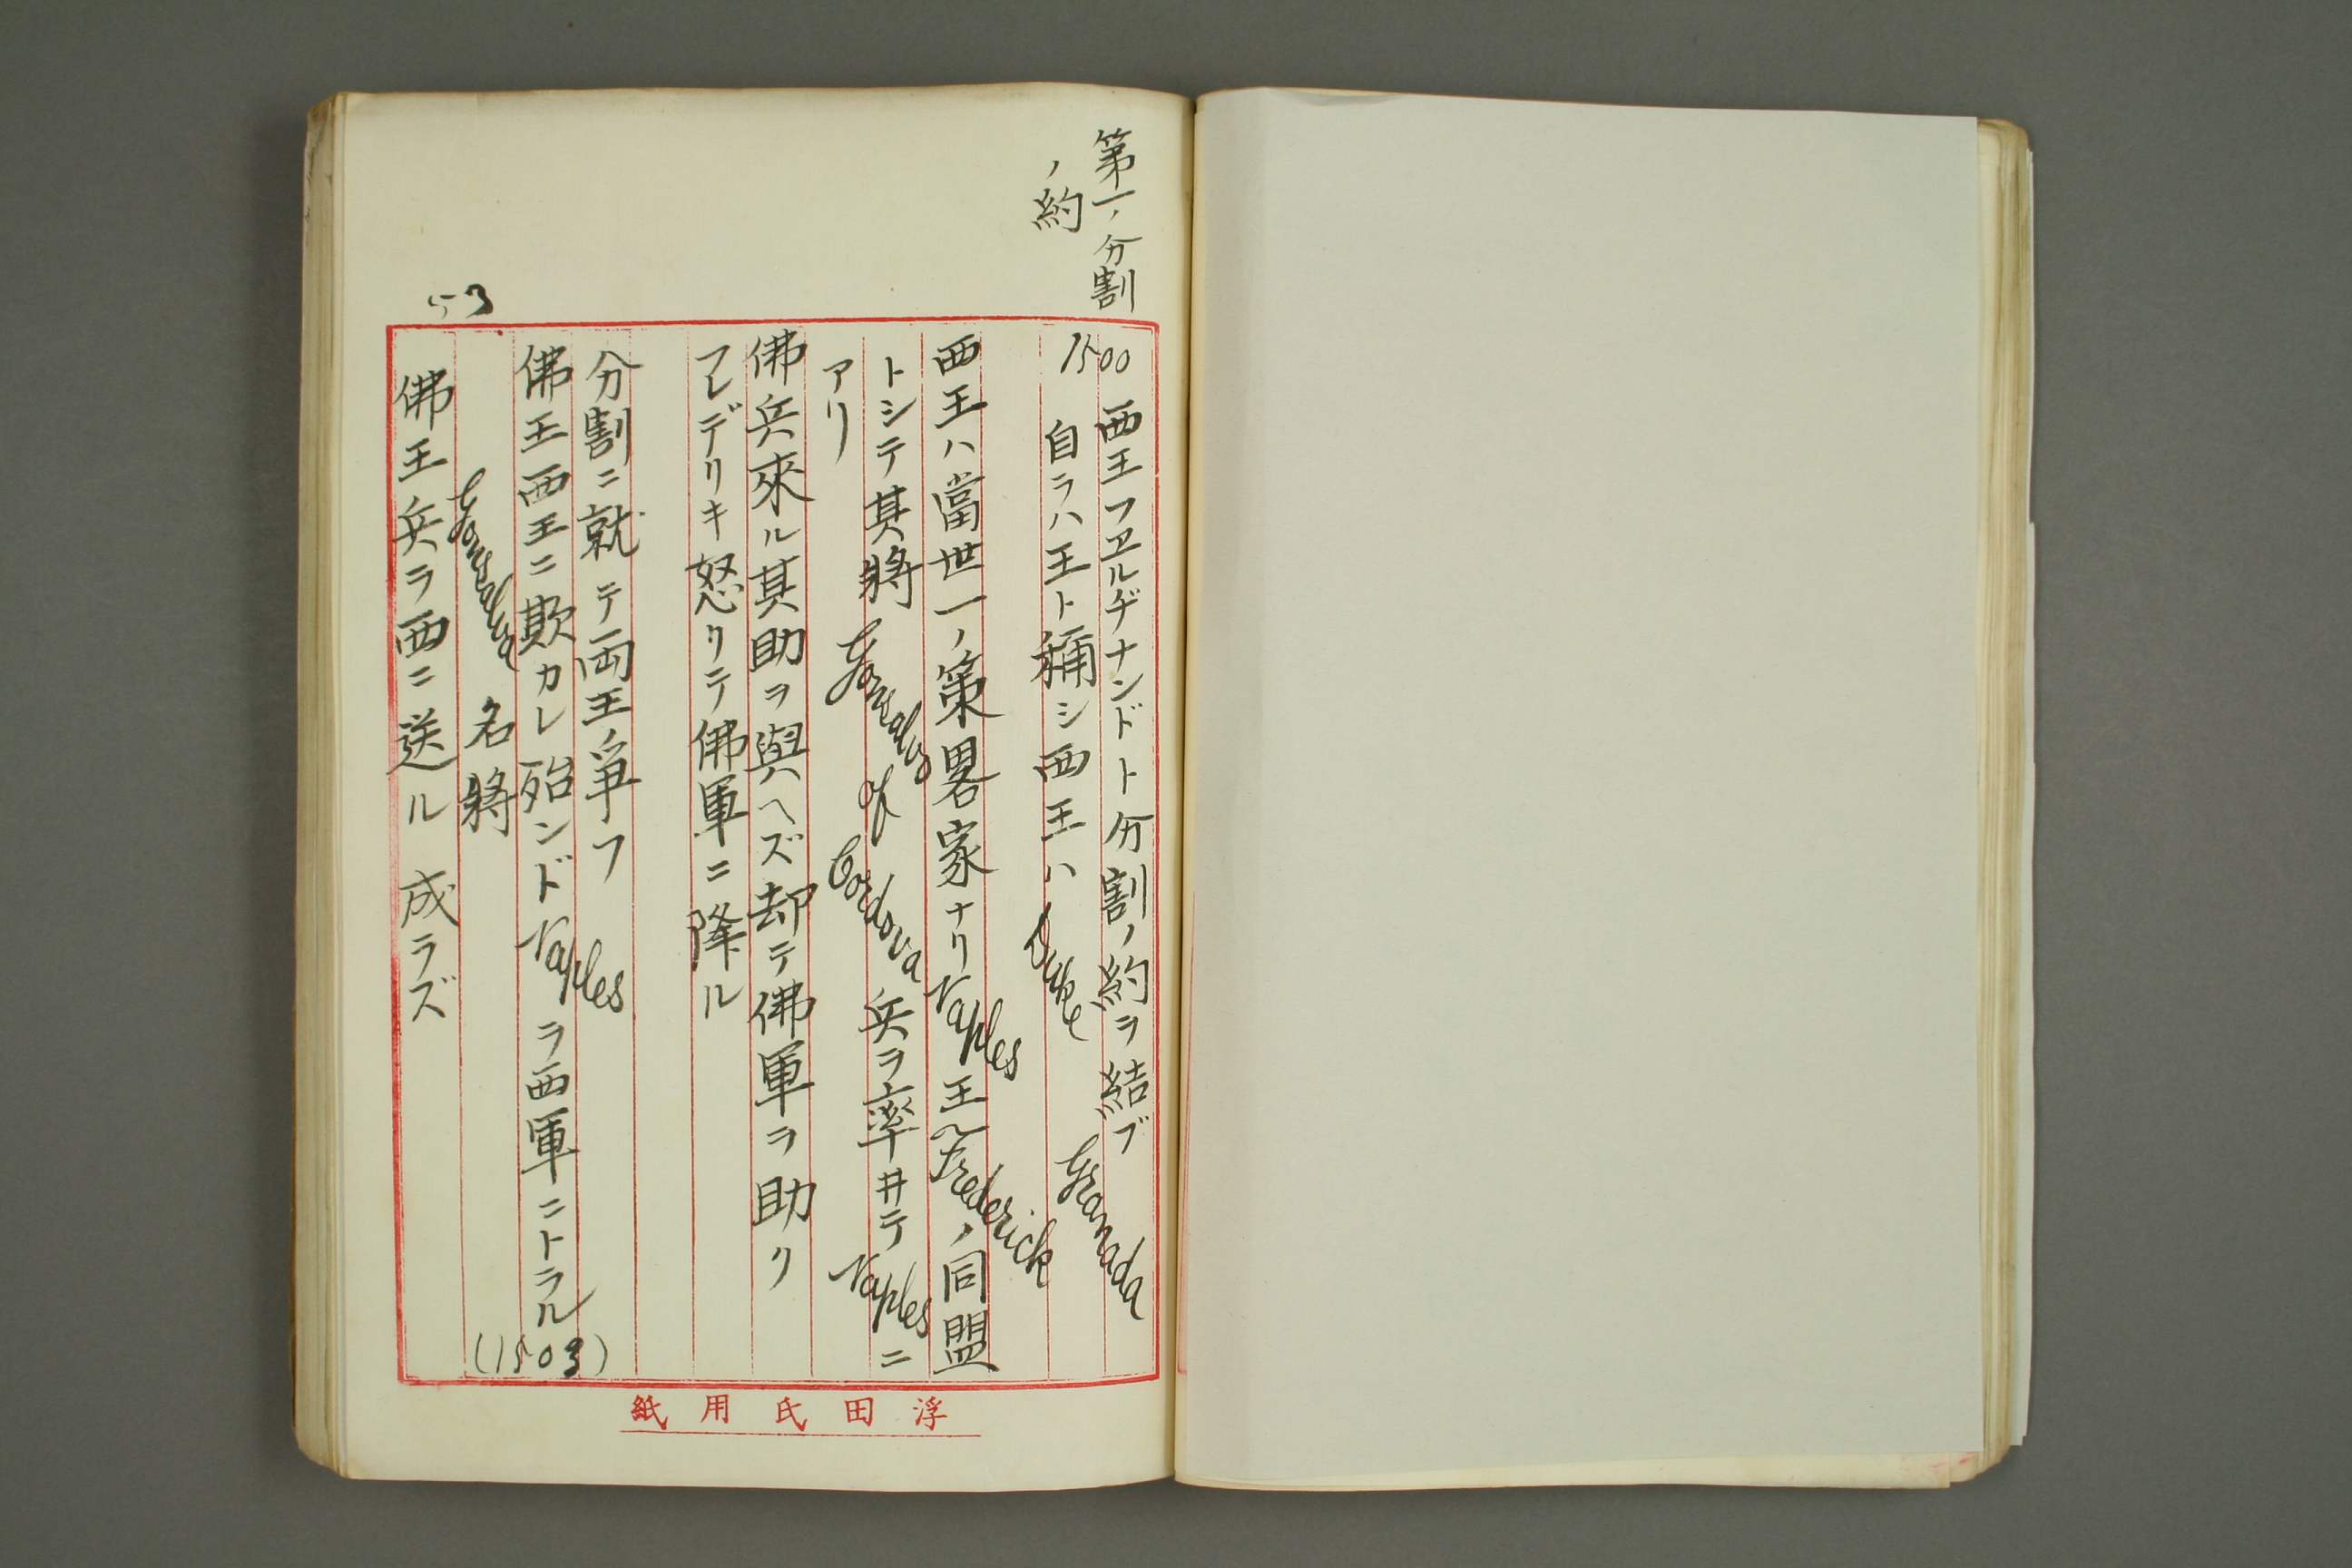 第一ノ分割
ノ約
1500 西王フヱルヂナンドト分割ノ約ヲ結ブ Granada
自ラハ王ト稱シ西王ハ Duke
西王ハ當世一ノ策畧家ナリ Naples 王 Frederick ノ同盟
トシテ其將 Gonsalvo of Cordova 兵ヲ率井テ Naples ニ
アリ
佛兵來ル其助ヲ與ヘズ却テ佛軍ヲ助ク
フレデリキ怒リテ佛軍ニ降ル
分割ニ就テ両王ノ爭フ
佛王西王ニ欺カレ殆ンド Naples ヲ西軍ニトラル
(1503)
Gonsalva 名將
佛王兵ヲ西ニ送ル 成ラズ
53
浮田氏用紙